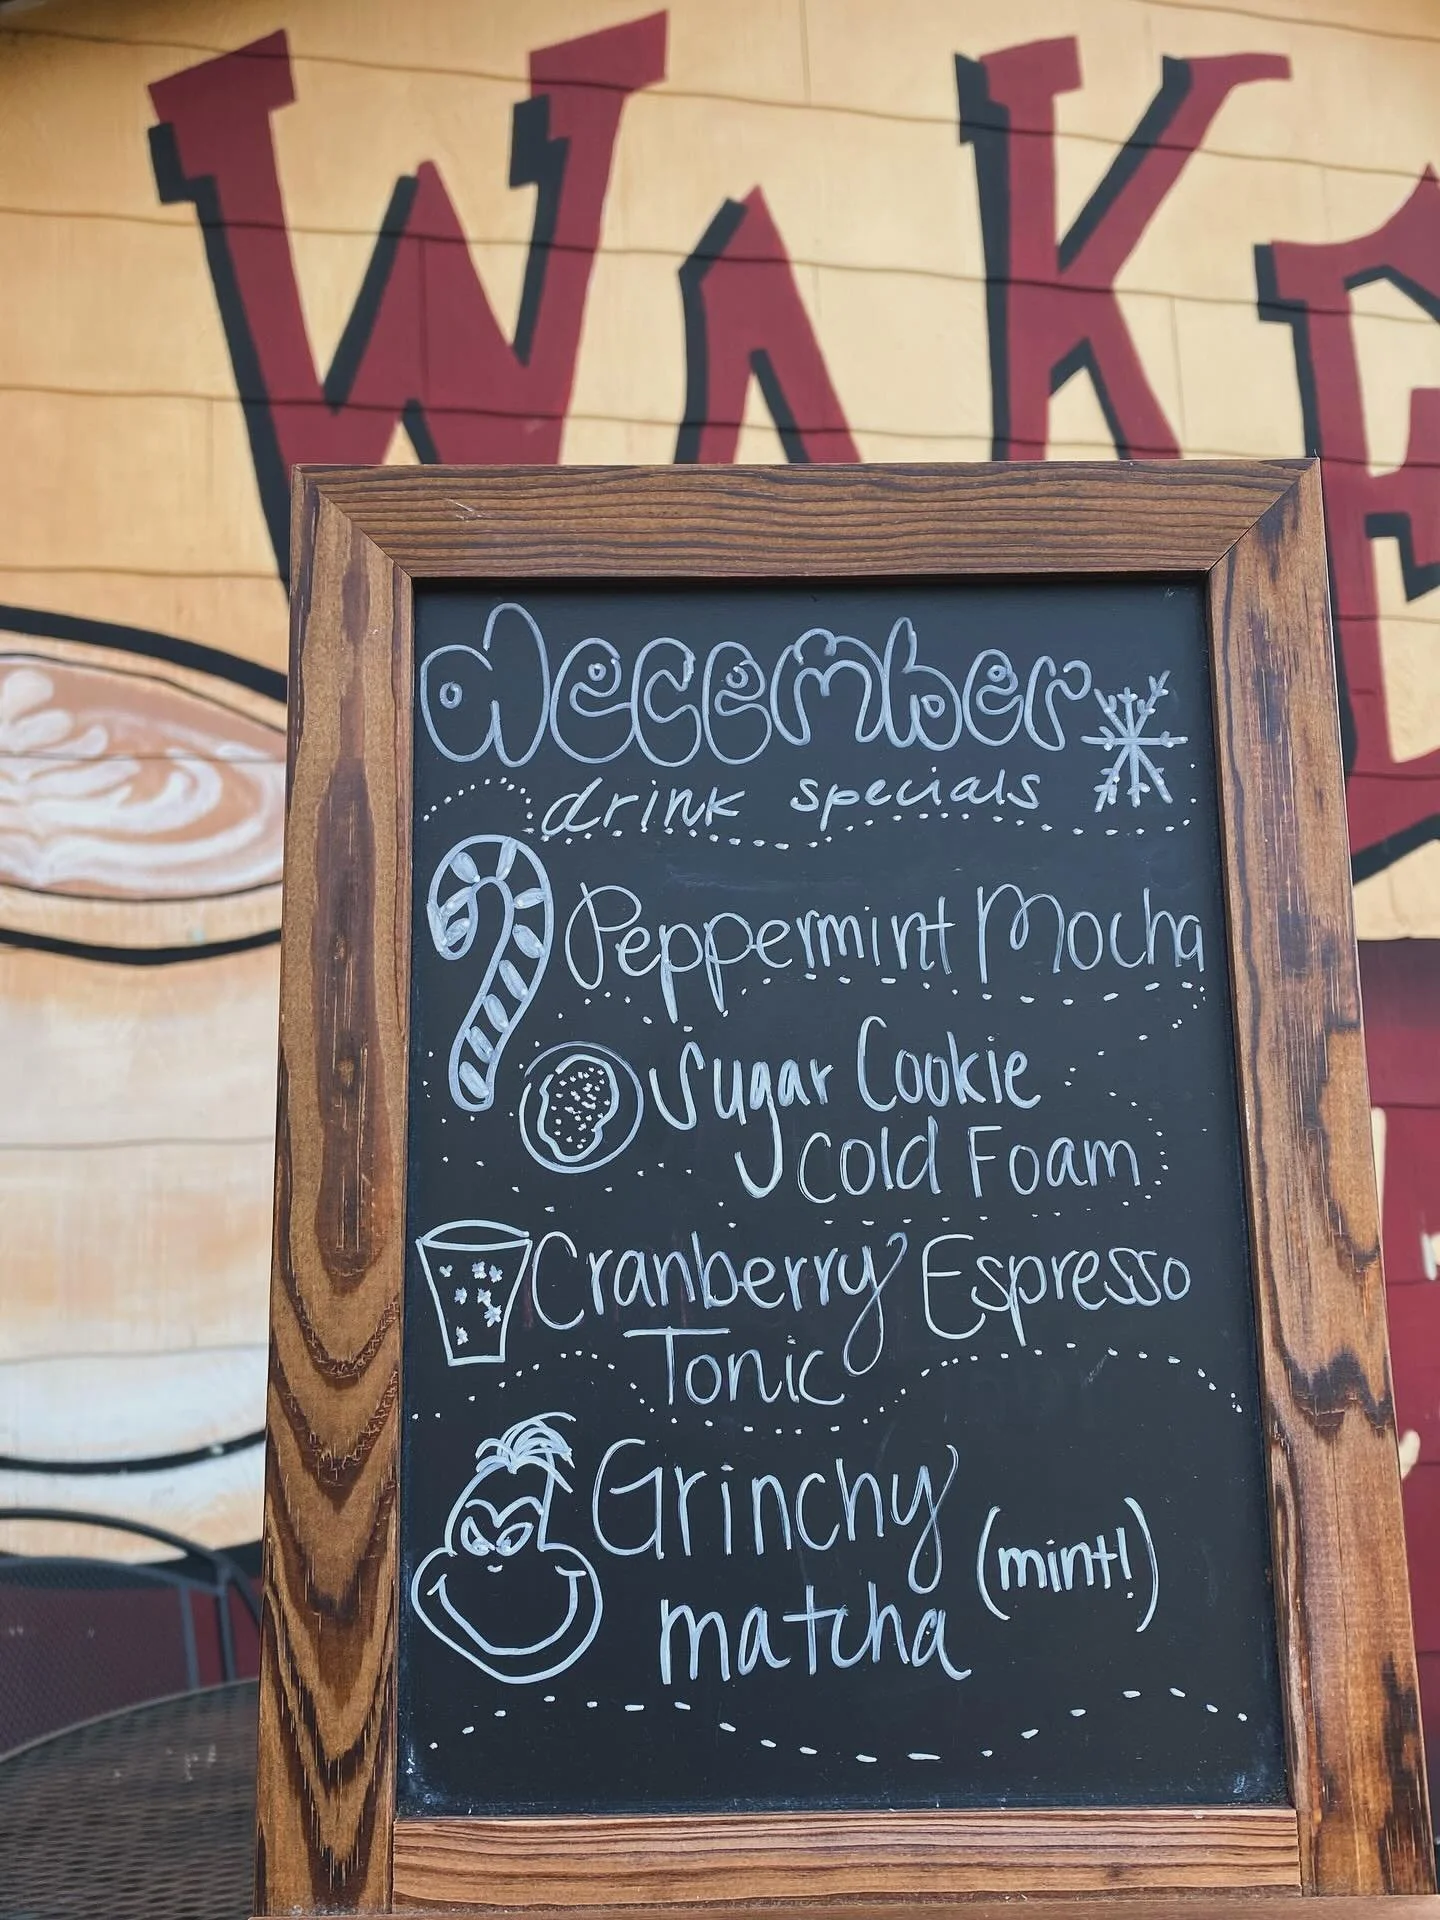 WAKE
december
drink specials
Peppermint Mocha
Sugar Cookie
Cold Foam
Cranberry Espresso
Tonic
Grinchy
(mint!)
matcha